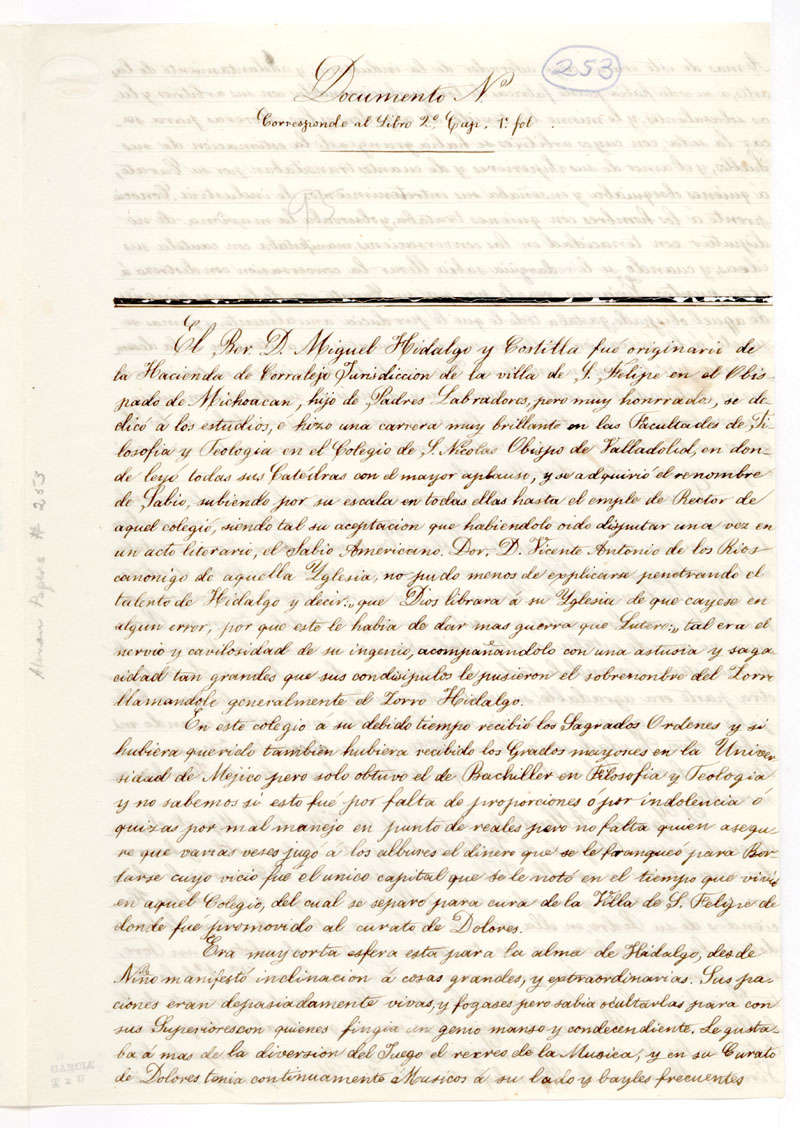 253
Documento Nº
Corresponde al Libro 2º Cap. 1º fol .
El Bor. D. Miguel Hidalgo y Costilla fué originario de
la Hacienda de Corralejo Jurisdiccion de la villa de S. Felipe en el Obis-
pado de Michoacan, hijo de Padres Labradores, pero muy honrrados, se de-
dicó á los estudios, e hizo una carrera muy brillante en las Facultades de Fi-
losofia y Teologia en el Colegio de S. Nicolas Obispo de Valladolid, en don-
de leyó todas sus Catédras con el mayor aplauso, y se adquirió el renombre
de Sabio, subiendo por su escala en todas ellas hasta el emple de Rector de
aquel colegio, siendo tal su aceptacion que habiendolo oido disputar una vez en
un acto literario, el Sabio Americano. Dor. D. Vicente Antonio de los Rios
canonigo de aquella Yglesia, no pudo menos de explicarse penetrando el
talento de Hidalgo y decir:,, que Dios librara á su Yglesia de que cayese en
algun error, por que este le habia de dar mas guerra que Lutero:,, tal era el
nervio y cavilosidad de su ingenio, acompañandolo con una astusia y saga
cidad tan grandes que sus condisipulos le pusieron el sobrenombre del Zorro
llamandole generalmente el Zorro Hidalgo.
En este colegio á su debido tiempo recibió los Sagrados Ordenes y si
hubiera querido tambien hubiera recibido los Grados mayores en la Univer
sidad de Mejico pero solo obtuvo el de Bachiller en Filosofia y Teologia
y no sabemos si esto fué por falta de proporciones ó por indolencia ó
quizas por mal manejo en punto de reales pero no falta quien asegu-
re que varias veses jugó á los albures el dinero que se le franqueó para Bor-
larse cuyo vicio fué el unico capital que se le notó en el tiempo que vivió
en aquel Colegio, del cual se separo para cura de la Villa de S. Felipe de
donde fué promovido al curato de Dolores.
Era muy corta esfera esta para la alma de Hidalgo, desde
Niño manifestó inclinacion á cosas grandes, y extraordinarias. Sus pa-
ciones eran depasiadamente vivas, y fogases pero sabia ocultarlas para con
sus Superiores con quienes fingia un genio manso y condecendiente. Le gusta-
ba á mas de la diversion del Juego el recreo de la Musica, y en su Curato
de Dolores tenia continuamente Musicos á su lado y bayles frecuentes
Alaman Papers # 253
GARCIA